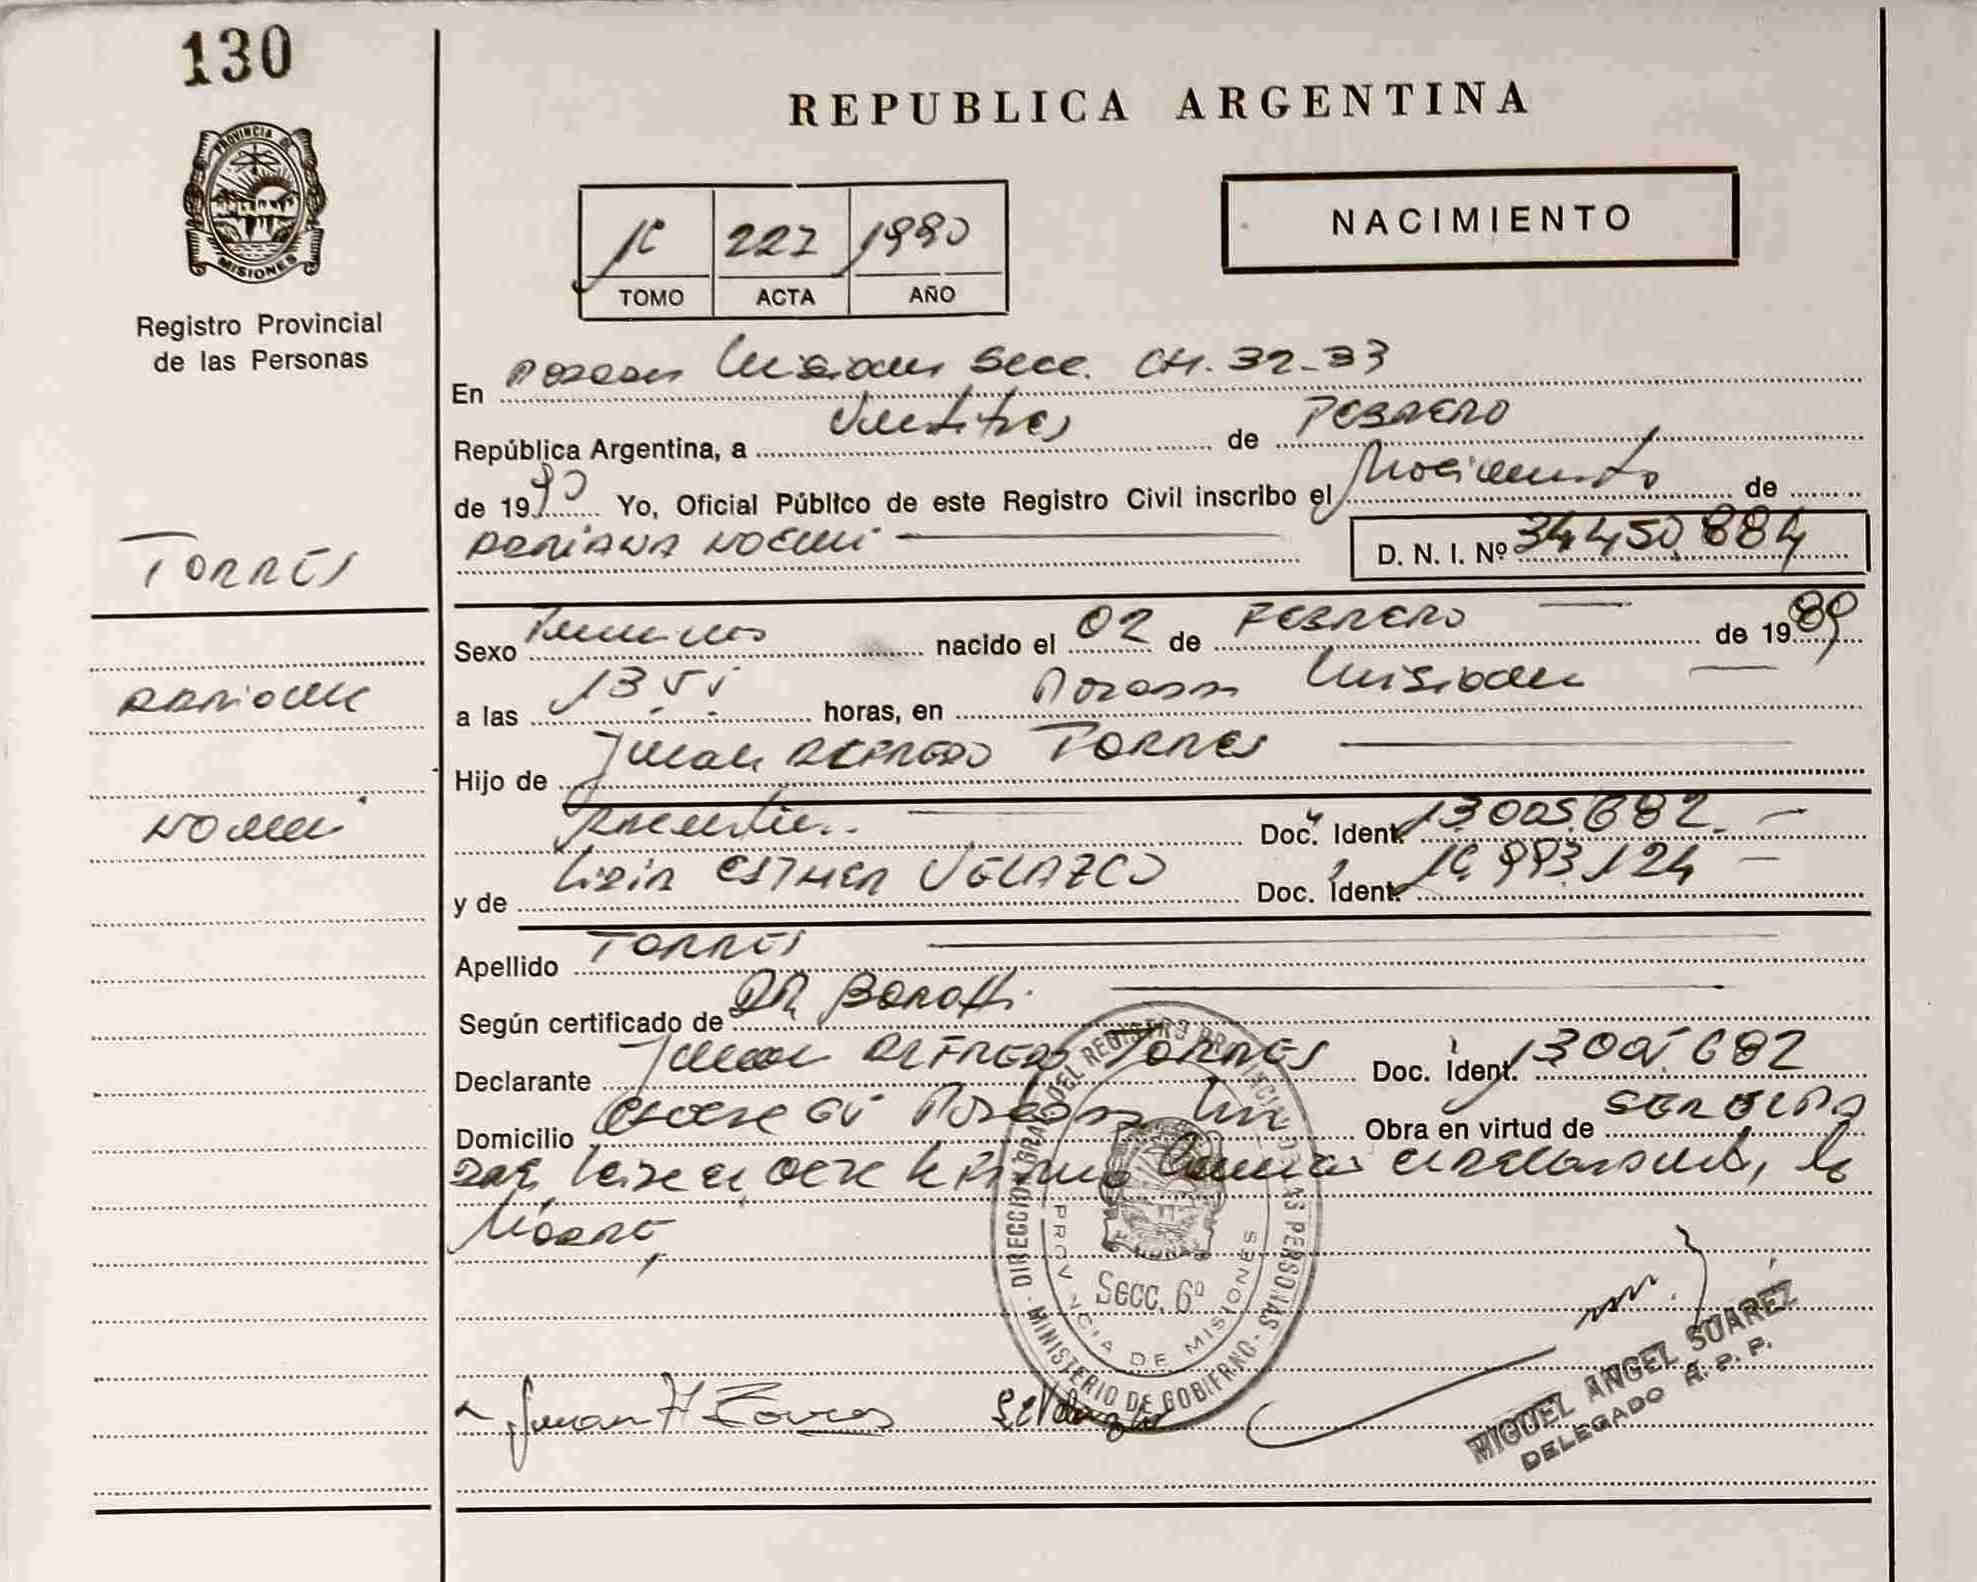 130
REPUBLICA ARGENTINA
PROVINCIA DE
MISIONES
Registro Provincial
de las Personas
NACIMIENTO
227 1990
TOMO ACTA AÑO
En Posadas Misiones Secc. CH. 32-33
República Argentina, a Veintitres de FEBRERO
de 1990 Yo, Oficial Público de este Registro Civil inscribo el Nacimiento de
ADRIANA NOEMI
D. N. I. Nº 34450884
TORRES
ADRIANA
NOEMI
Sexo Femenino nacido el 02 de FEBRERO de 1989
a las horas, en Posadas Misiones
Hijo de Juan ALFREDO TORRES
Argentino Doc. Ident. 13.005.682
y de ESTHER VELAZCO Doc. Ident.
Apellido TORRES
Según certificado de DR
Declarante Juan ALFREDO TORRES Doc. Ident. 13005682
Domicilio Posadas Obra en virtud de
DIRECCION GRAL. DEL REGISTRO PROVINCIAL DE LAS PERSONAS
MINISTERIO DE GOBIERNO
PROVINCIA DE MISIONES
Secc. 6º
Juan A Torres
MIGUEL ANGEL SUAREZ
DELEGADO R. P. P.